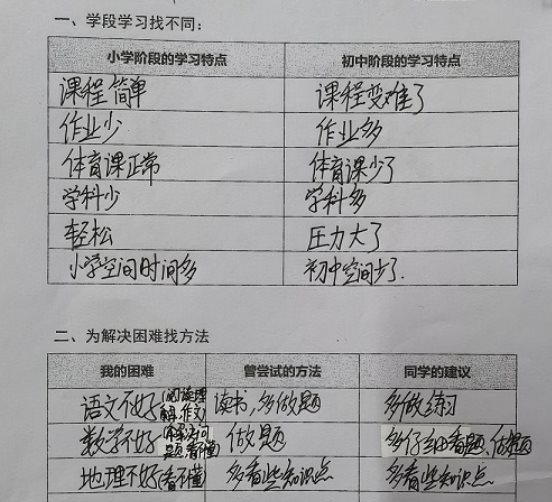 一、学段学习找不同：
小学阶段的学习特点 初中阶段的学习特点
课程简单 课程变难了
作业少 作业多
体育课正常 体育课少了
学科少 学科多
轻松 压力大了
小学空间时间多 初中空间少了.
二、为解决困难找方法
我的困难 曾尝试的方法 同学的建议
语文不好(阅读理解、作文) 读书,多做题 多做练习
数学不好 做题 多仔细看题、做题
地理不好(看不懂) 多看些知识点 多看些知识点